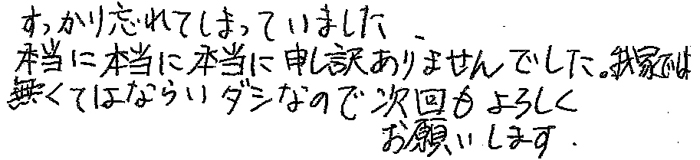 すっかり忘れてしまっていました、
本当に本当に本当に申し訳ありませんでした。我家では
無くてはならいダシなので次回もよろしく
お願いします.